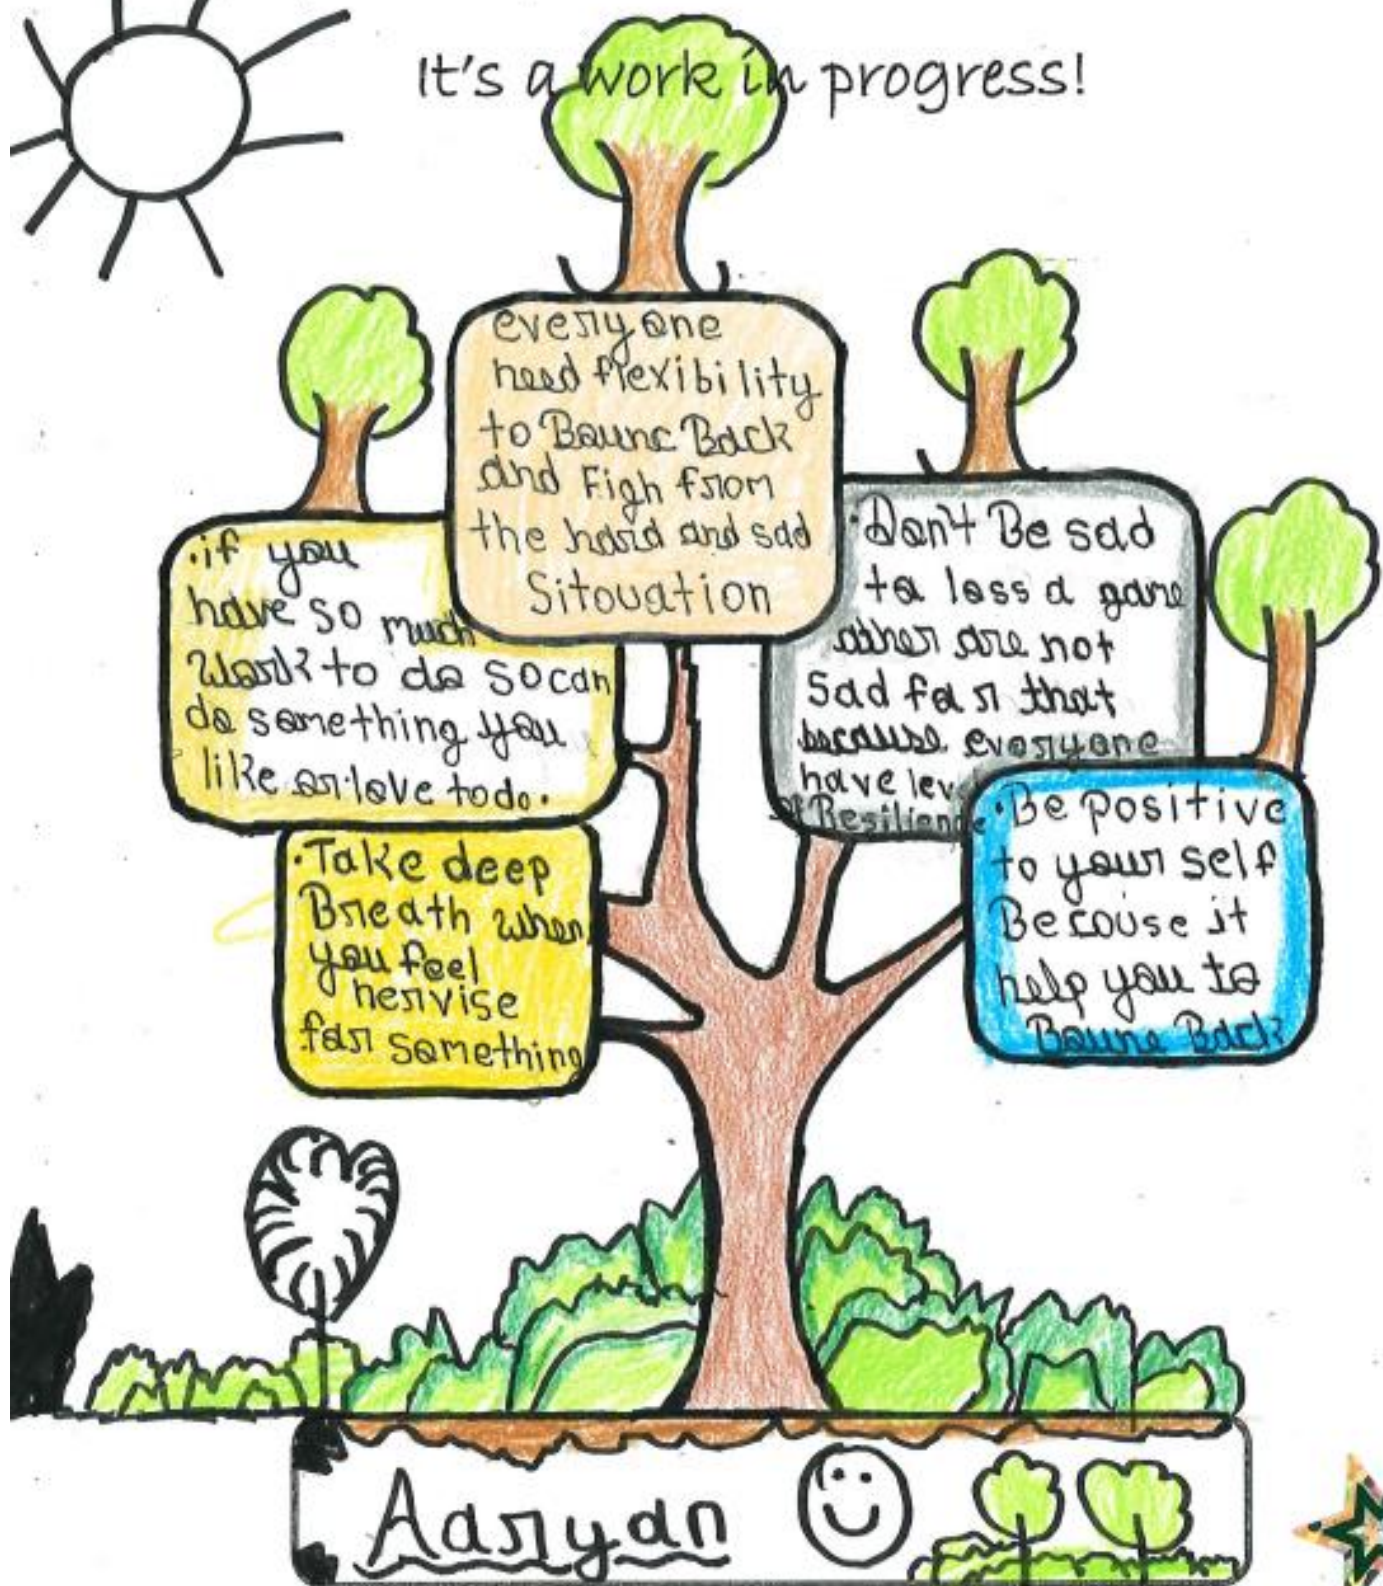 It's a work in progress!
everyone
need flexibility
to Bounc Back
and Figh from
the hard and sad
Sitouation
•if you
have so much
Work to do so can
do something you
like or love to do.
•Don't Be sad
to loss a game
other are not
sad for that
because everyone
have lev
of Resilience
•Take deep
Breath when
you feel
nervise
for something
•Be positive
to your self
Becouse it
help you to
Boune Back
Aaryan